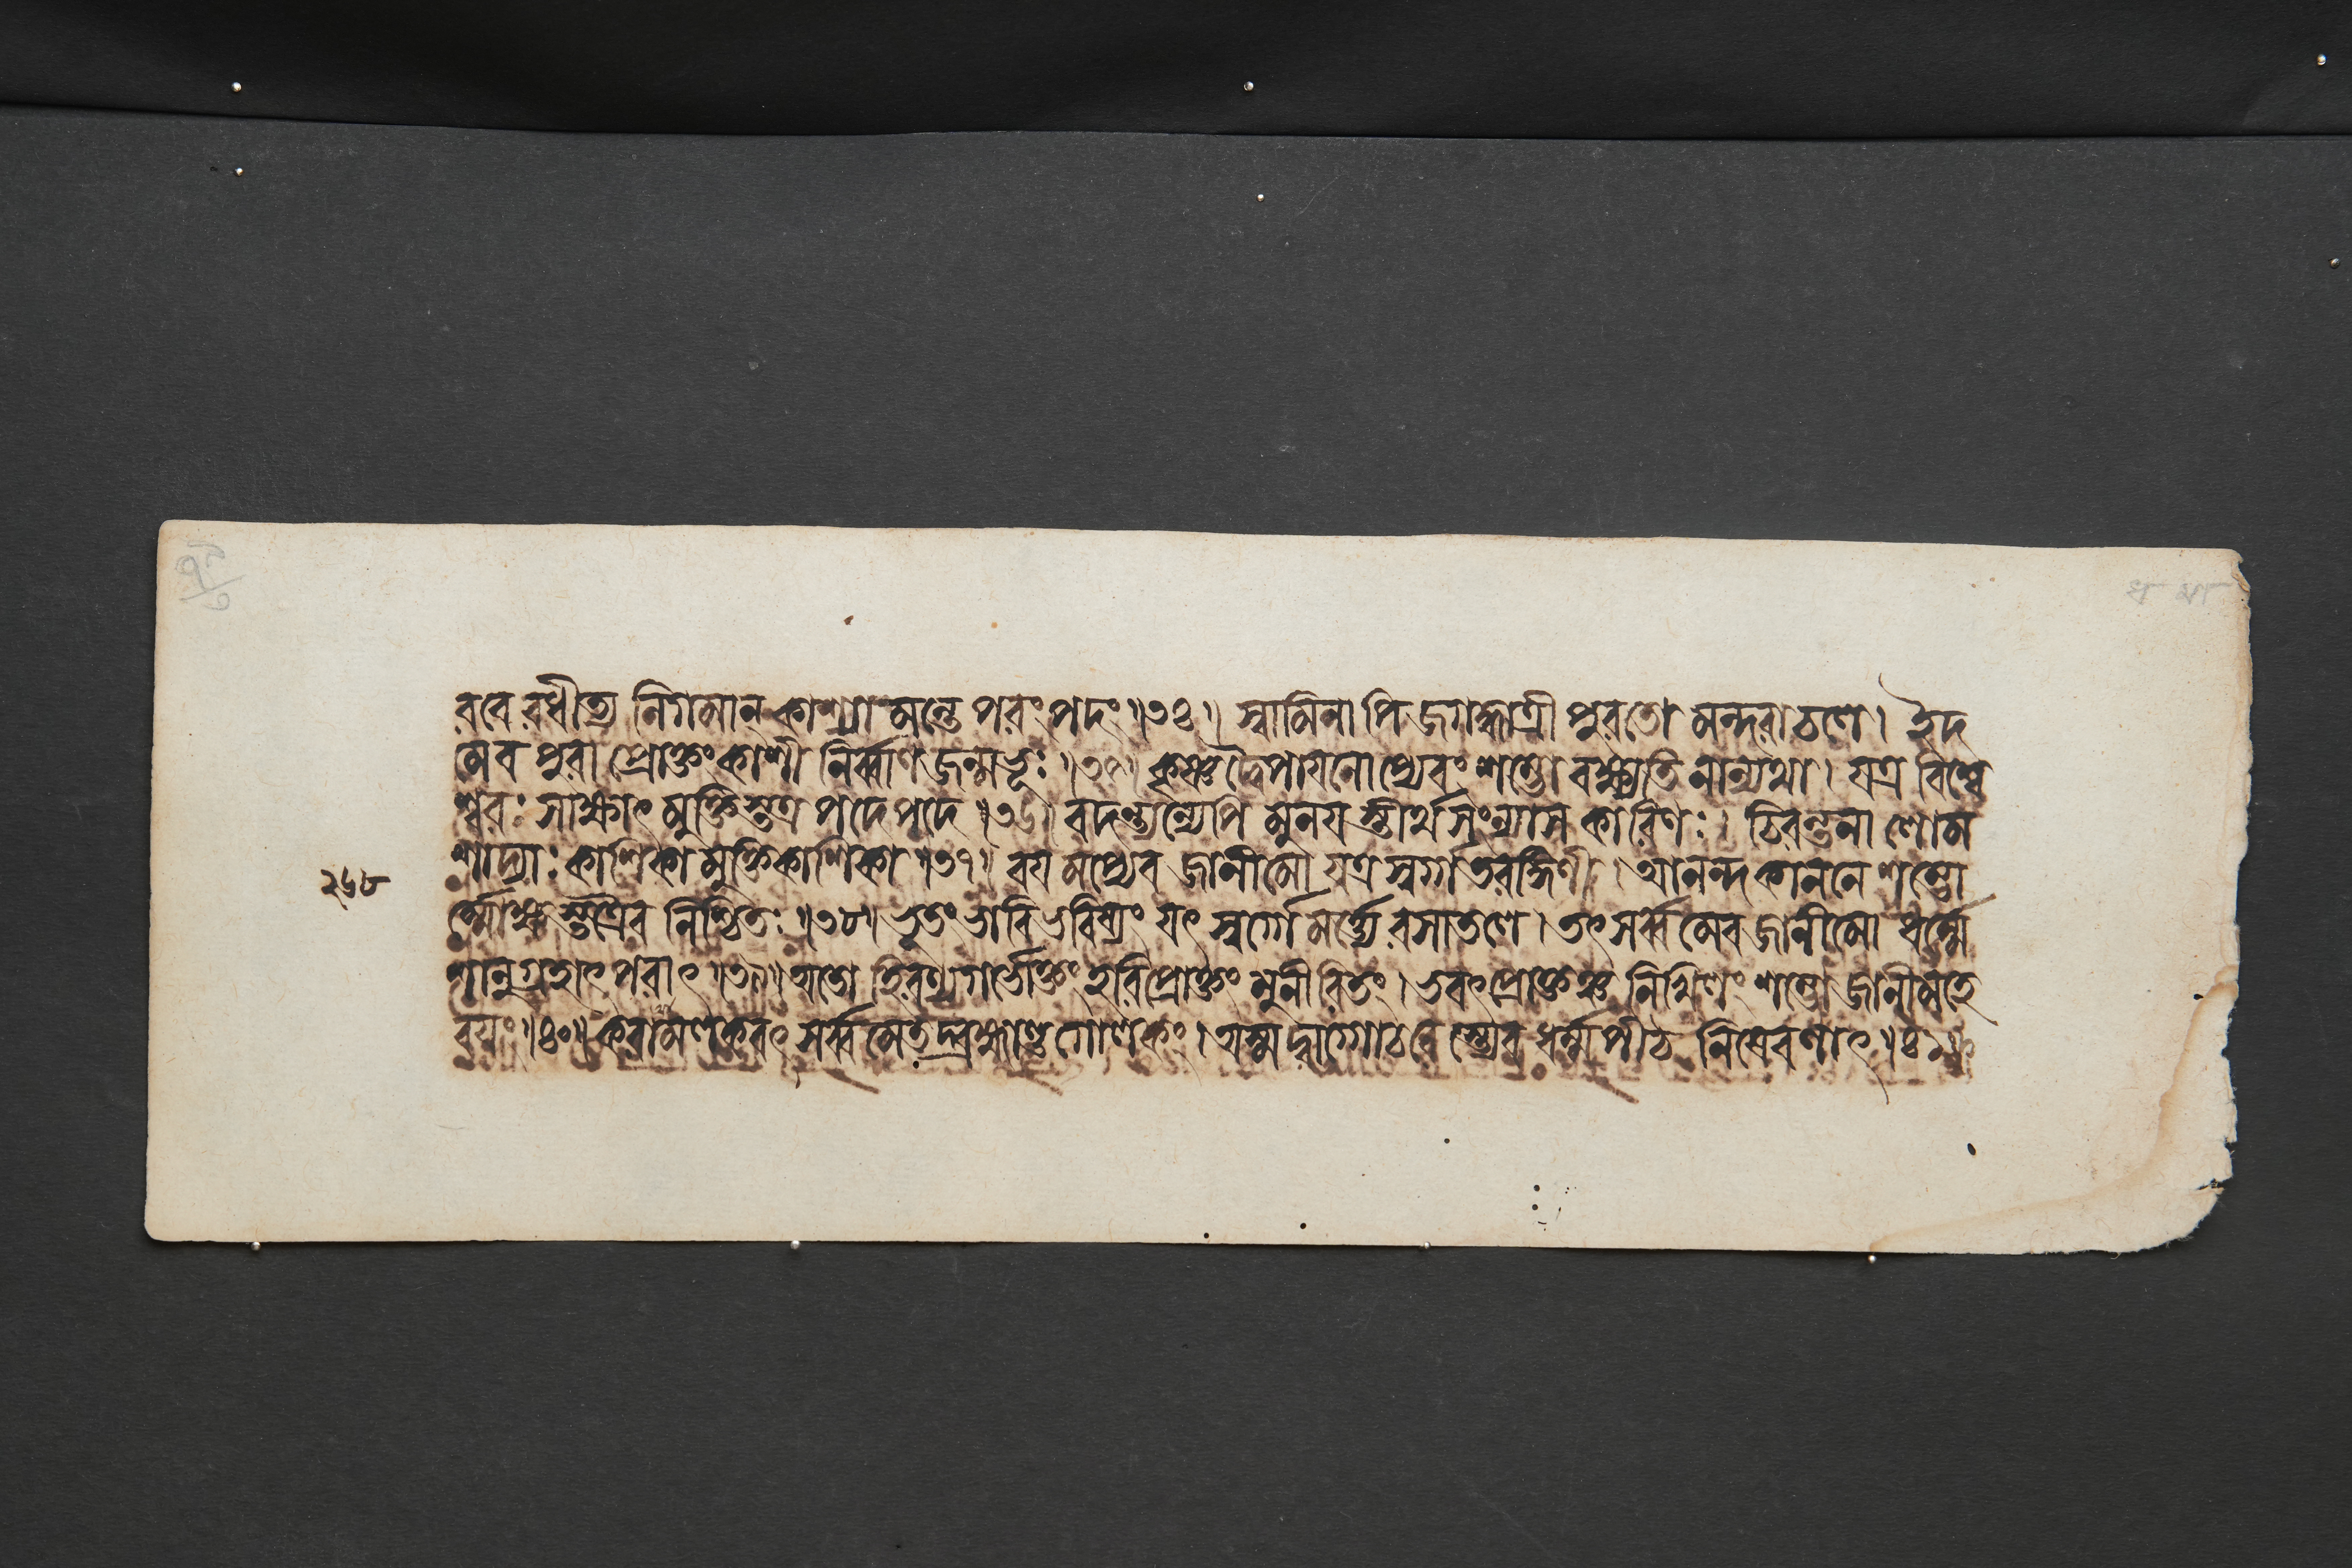 রবেরধীত্য নিগমান্ কাশ্যামন্তে পরংপদং ॥৩৪॥ স্বামিনাপি জগদ্ধাত্রী পুরতো মন্দরাচলে । ইদ
মেব পুরা প্রোক্তং কাশী নির্ব্বাণজন্মভূঃ ॥৩৫॥ কৃষ্ণদ্বৈপায়নোপ্যেবং শম্ভো বক্ষ্যতি নান্যথা । যত্র বিশ্বে
শ্বরঃ সাক্ষাৎ মুক্তিস্তত্র পদে পদে ॥৩৬॥ বদন্ত্যন্যেপি মুনয়স্তীর্থসংন্যাসকারিণঃ । চিরন্তনা লোম
শাদ্যাঃ কাশিকা মুক্তিকাশিকা ॥৩৭॥ বয়মপ্যেব জানীমো যত্র স্বর্গাতরঙ্গিণী । আনন্দকাননে শম্ভো
২৬৮
র্ম্মোক্ষস্তত্রৈব নিশ্চিতঃ ॥৩৮॥ ভূতং ভাবি ভবিষ্যং যৎ স্বর্গে মর্ত্ত্যে রসাতলে । তৎ সর্ব্বমেব জানীমো ধর্ম্মে
শানুগ্রহাৎ পরাৎ ॥৩৯॥ অতো হিরণ্যগর্ভোক্তং হরিপ্রোক্তং মুনীরিতং । ভবৎপ্রোক্তঞ্চ নিখিলং শম্ভো জানীমহে
বয়ং ॥৪০॥ করামলকবৎ সর্ব্বমেতদ্ব্রহ্মাণ্ডগোলকং । অস্মদ্বাগ্গোচরেস্ত্যেব ধর্ম্মপীঠ নিষেবণাৎ ॥৪১॥